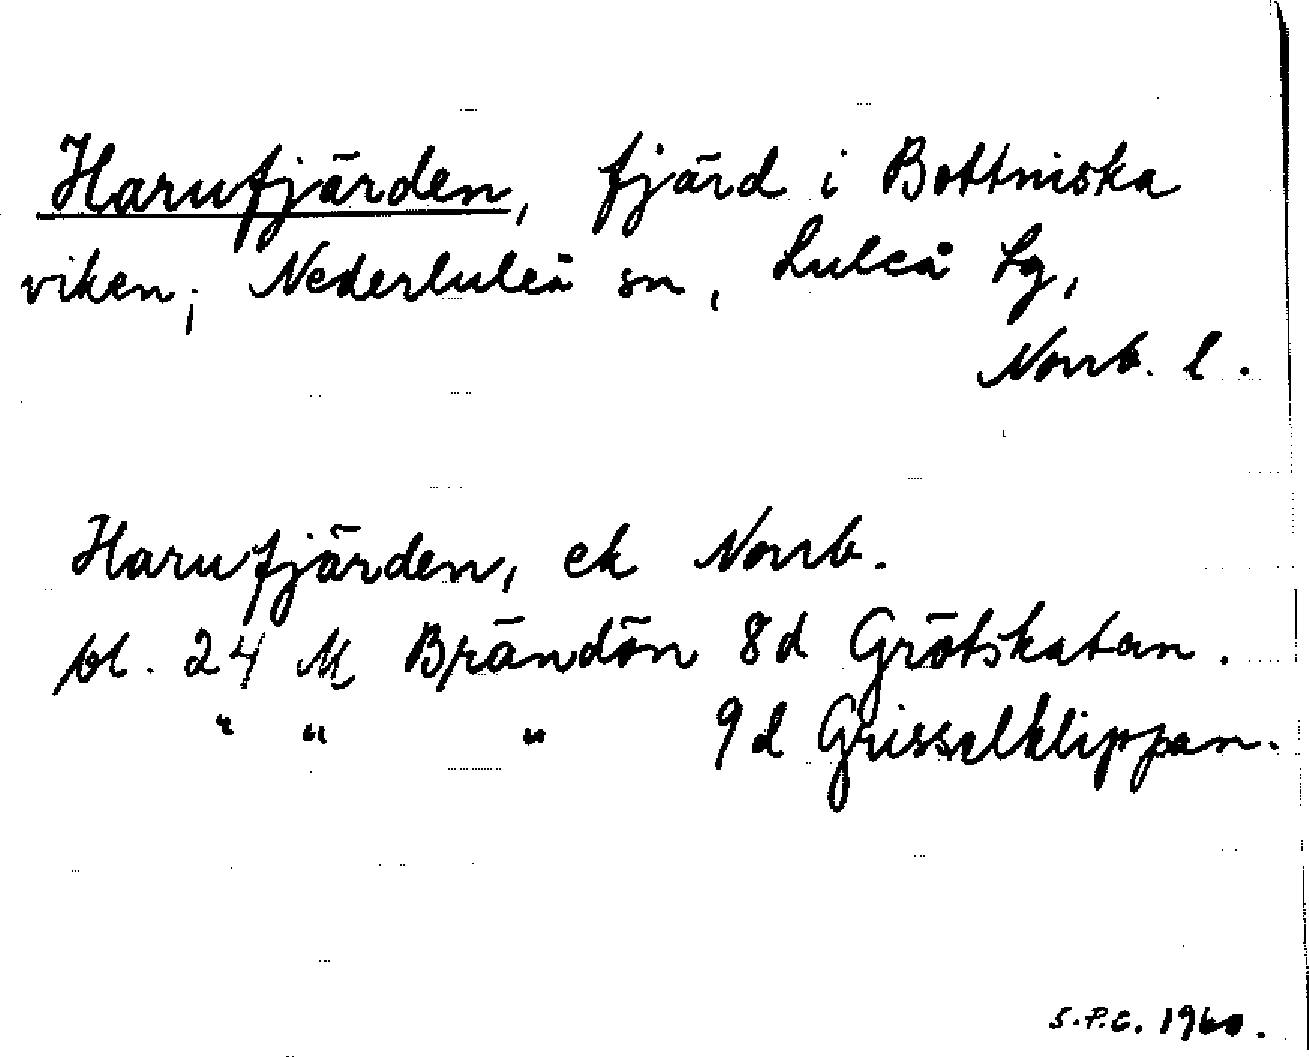 Harufjärden, fjärd i Bottniska
viken; Nederluleå sn, Luleå Lg,
Norrb. l.
Harufjärden, ek Norrb.
bl. 24 M Brändön 8d Grötskatan.
" " " 9d Grisselklippan.
S.P.C. 1960.